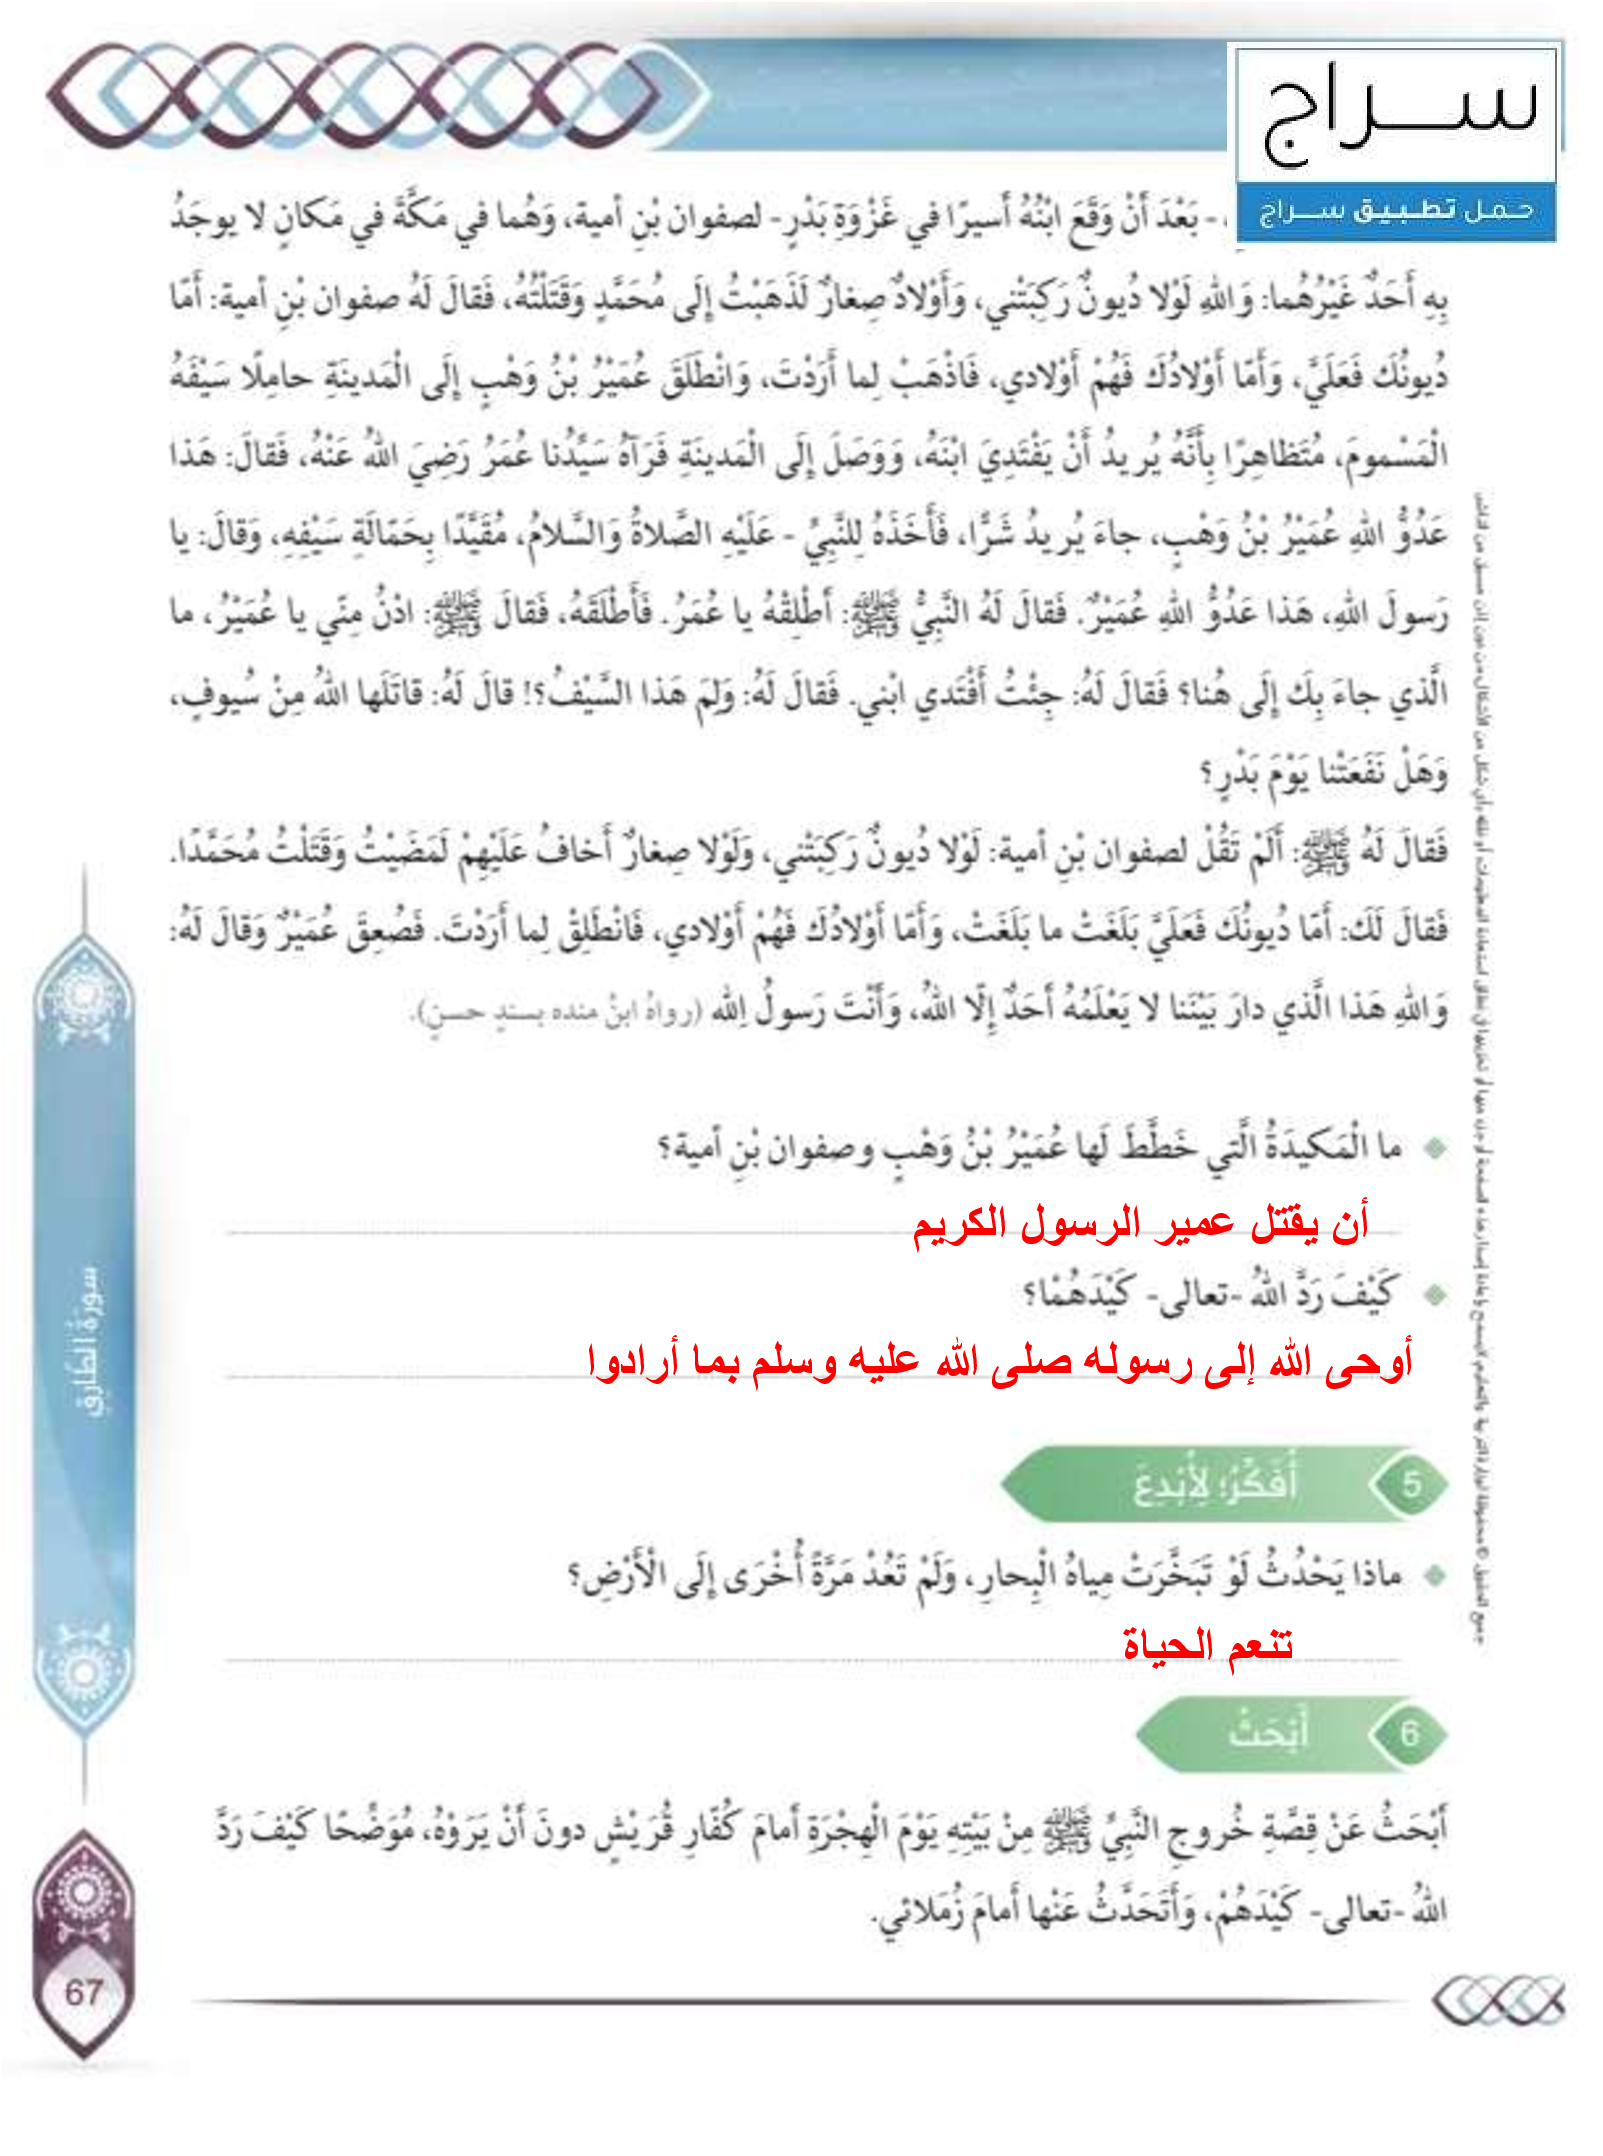 سراج
حمل تطبيق سراج
- بَعْدَ أَنْ وَقَعَ ابْنُهُ أَسيرًا في غَزْوَةِ بَدْرٍ- لصفوان بْنِ أمية، وَهُما في مَكَّةَ في مَكانٍ لا يوجَدُ
بِهِ أَحَدٌ غَيْرُهُما: وَاللهِ لَوْلا دُيونٌ رَكِبَتْني، وَأَوْلادٌ صِغارٌ لَذَهَبْتُ إِلَى مُحَمَّدٍ وَقَتَلْتُهُ، فَقالَ لَهُ صفوان بْنِ أمية: أَمّا
دُيونُكَ فَعَلَيَّ، وَأَمّا أَوْلادُكَ فَهُمْ أَوْلادي، فَاذْهَبْ لِما أَرَدْتَ، وَانْطَلَقَ عُمَيْرُ بْنُ وَهْبٍ إِلَى الْمَدينَةِ حامِلًا سَيْفَهُ
الْمَسْمومَ، مُتَظاهِرًا بِأَنَّهُ يُريدُ أَنْ يَفْتَدِيَ ابْنَهُ، وَوَصَلَ إِلَى الْمَدينَةِ فَرَآهُ سَيِّدُنا عُمَرُ رَضِيَ اللهُ عَنْهُ، فَقالَ: هَذا
عَدُوُّ اللهِ عُمَيْرُ بْنُ وَهْبٍ، جاءَ يُريدُ شَرًّا، فَأَخَذَهُ لِلنَّبِيِّ - عَلَيْهِ الصَّلاةُ وَالسَّلامُ، مُقَيَّدًا بِحَمّالَةِ سَيْفِهِ، وَقالَ: يا
رَسولَ اللهِ، هَذا عَدُوُّ اللهِ عُمَيْرٌ. فَقالَ لَهُ النَّبِيُّ ﷺ: أَطْلِقْهُ يا عُمَرُ. فَأَطْلَقَهُ، فَقالَ ﷺ: ادْنُ مِنّي يا عُمَيْرُ، ما
الَّذي جاءَ بِكَ إِلَى هُنا؟ فَقالَ لَهُ: جِئْتُ أَفْتَدي ابْني. فَقالَ لَهُ: وَلِمَ هَذا السَّيْفُ؟! قالَ لَهُ: قاتَلَها اللهُ مِنْ سُيوفٍ،
وَهَلْ نَفَعَتْنا يَوْمَ بَدْرٍ؟
فَقالَ لَهُ ﷺ: أَلَمْ تَقُلْ لصفوان بْنِ أمية: لَوْلا دُيونٌ رَكِبَتْني، وَلَوْلا صِغارٌ أَخافُ عَلَيْهِمْ لَمَضَيْتُ وَقَتَلْتُ مُحَمَّدًا.
فَقالَ لَكَ: أَمّا دُيونُكَ فَعَلَيَّ بَلَغَتْ ما بَلَغَتْ، وَأَمّا أَوْلادُكَ فَهُمْ أَوْلادي، فَانْطَلِقْ لِما أَرَدْتَ. فَصُعِقَ عُمَيْرٌ وَقالَ لَهُ:
وَاللهِ هَذا الَّذي دارَ بَيْنَنا لا يَعْلَمُهُ أَحَدٌ إِلّا اللهُ، وَأَنْتَ رَسولُ اللهِ (رواهُ ابنُ منده بسندٍ حسنٍ).
ما الْمَكيدَةُ الَّتي خَطَّطَ لَها عُمَيْرُ بْنُ وَهْبٍ وصفوان بْنِ أمية؟
أن يقتل عمير الرسول الكريم
كَيْفَ رَدَّ اللهُ -تعالى- كَيْدَهُمْا؟
أوحى الله إلى رسوله صلى الله عليه وسلم بما أرادوا
5 أُفَكِّرُ؛ لِأُبْدِعَ
ماذا يَحْدُثُ لَوْ تَبَخَّرَتْ مِياهُ الْبِحارِ، وَلَمْ تَعُدْ مَرَّةً أُخْرَى إِلَى الْأَرْضِ؟
تنعم الحياة
6 أَبْحَثُ
أَبْحَثُ عَنْ قِصَّةِ خُروجِ النَّبِيِّ ﷺ مِنْ بَيْتِهِ يَوْمَ الْهِجْرَةِ أَمامَ كُفّارِ قُرَيْشٍ دونَ أَنْ يَرَوْهُ، مُوَضِّحًا كَيْفَ رَدَّ
اللهُ -تعالى- كَيْدَهُمْ، وَأَتَحَدَّثُ عَنْها أَمامَ زُمَلائي.
سورَةُ الطّارِقِ
67